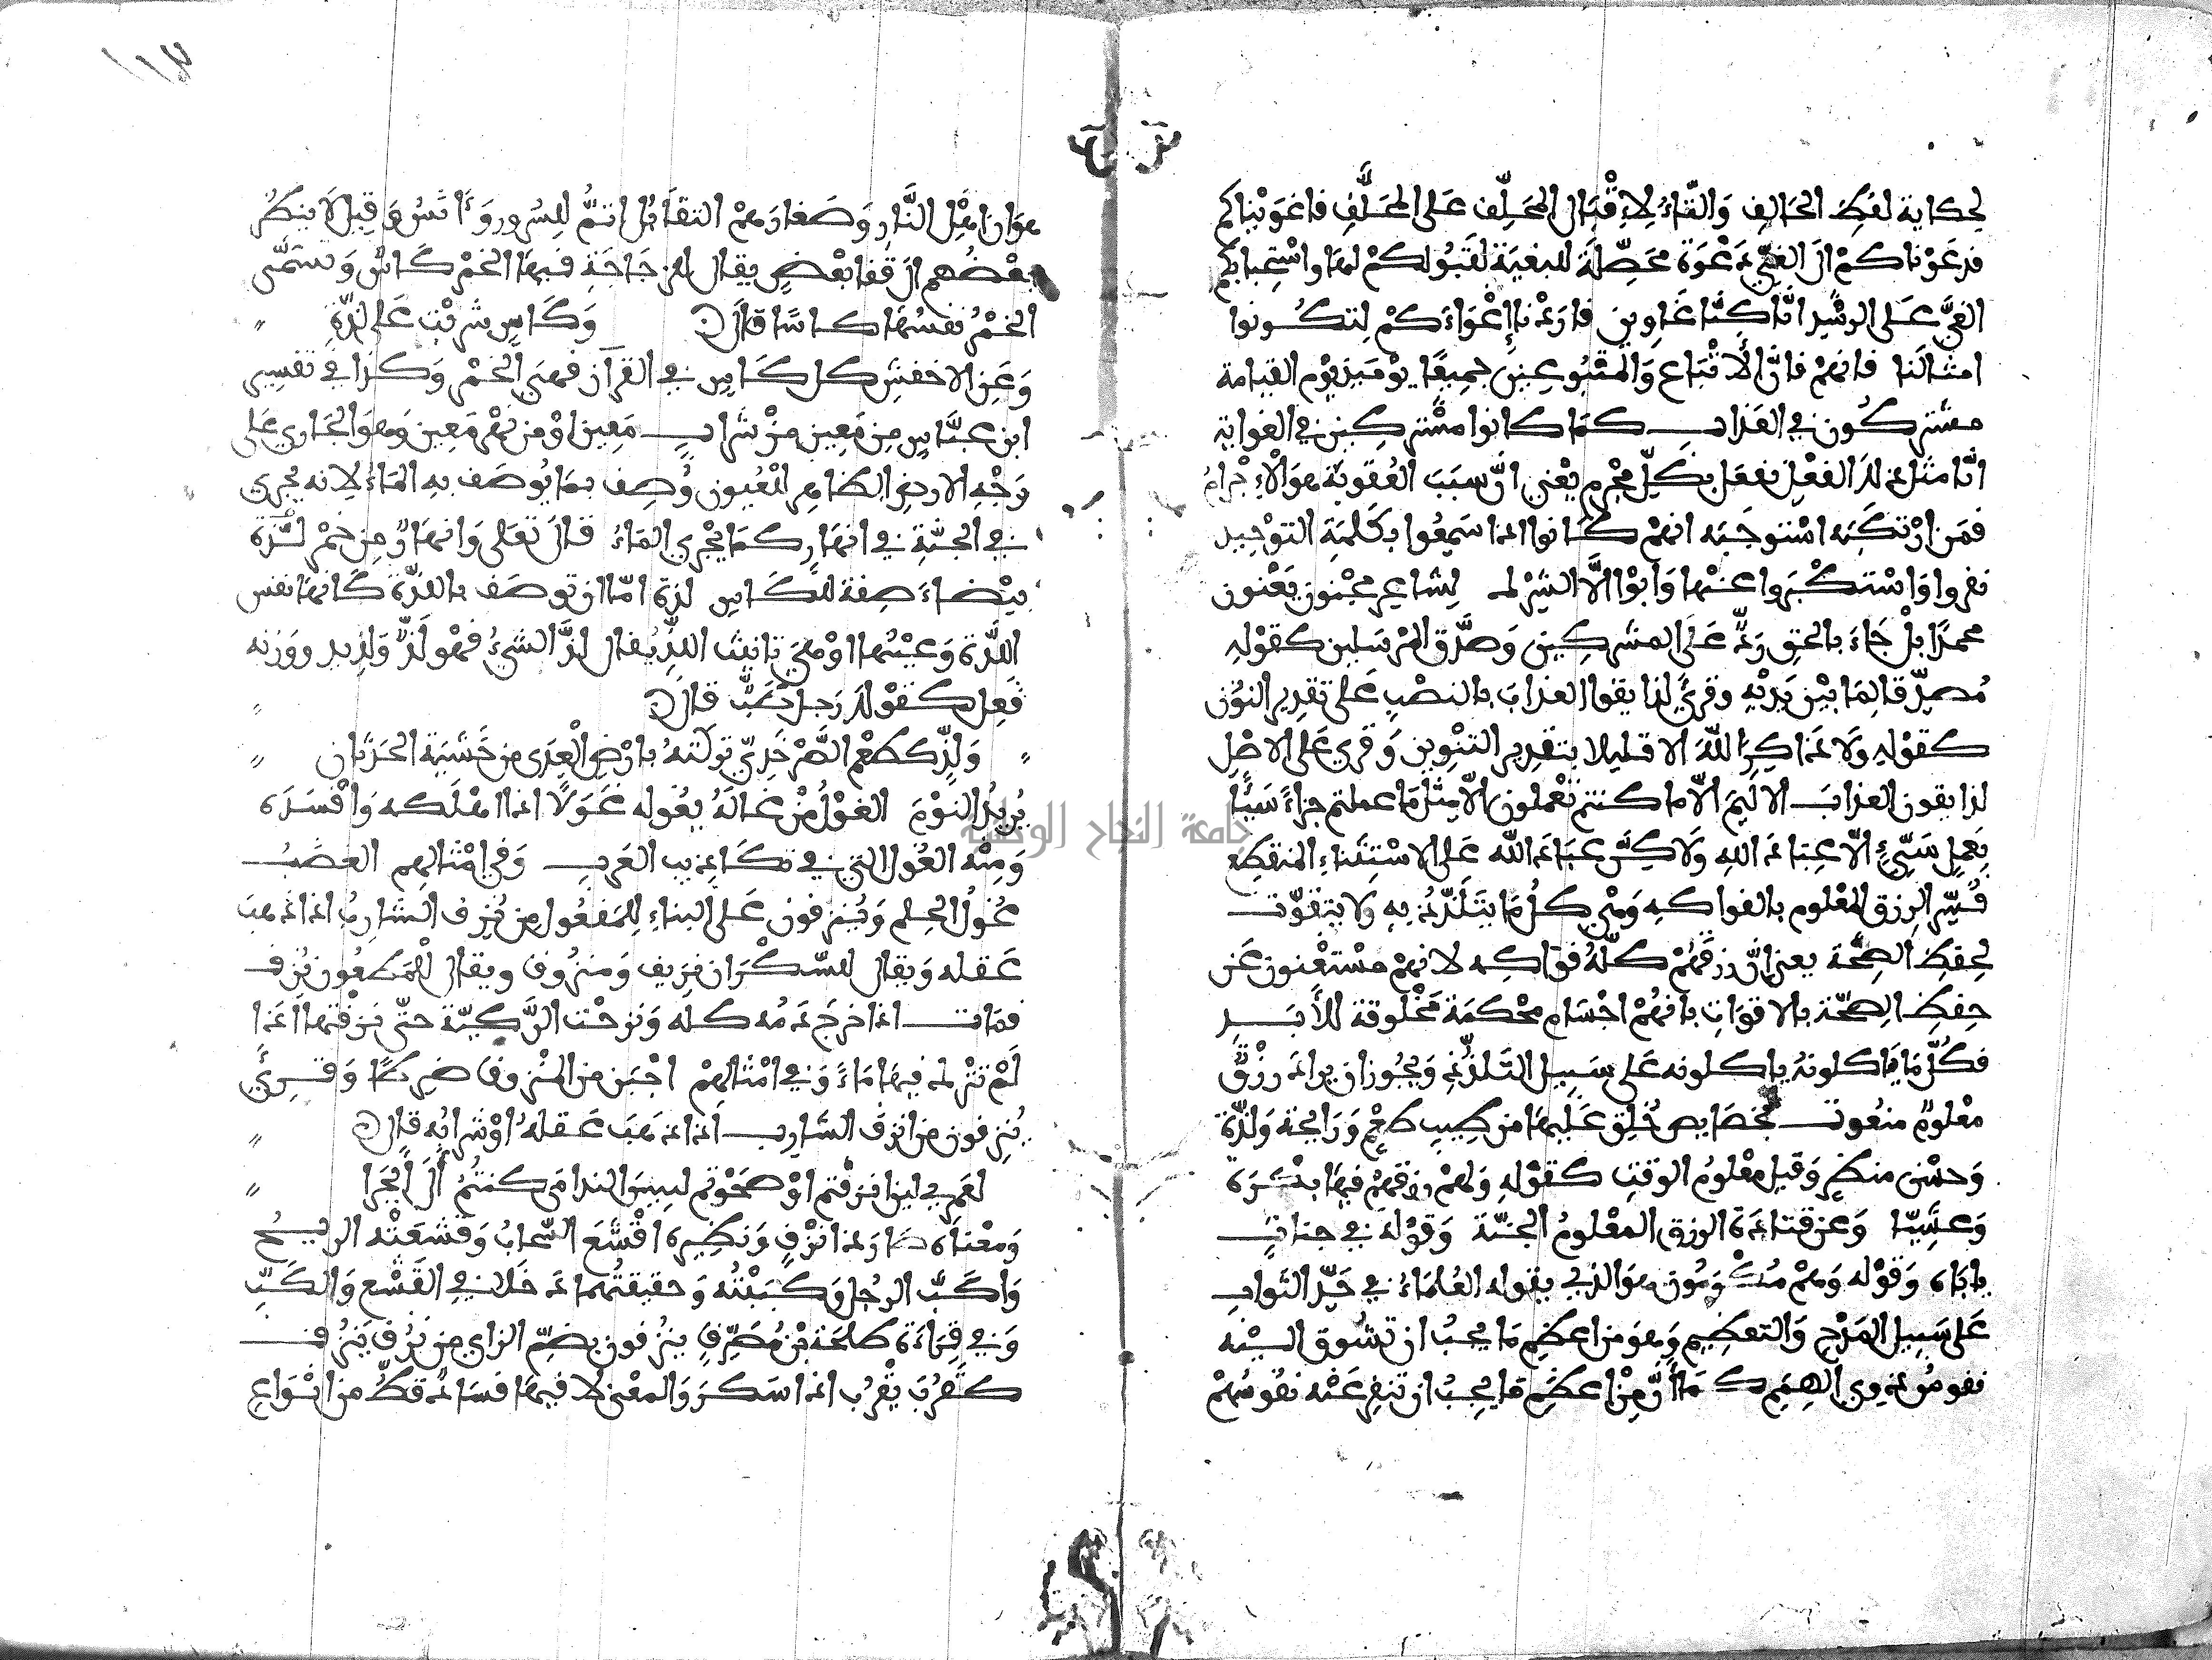 لحكاية لفظ الحالف والتاء لاقبال المحلِّف على المحلَّف فاغويناكم
فدعوناكم الى الغي دعوة محصّلة للبغية لقبولكم لها واستحبابكم
الغيّ على الرشد انّا كنّا غاوين فاردنا إغواءكم لتكونوا
امثالنا فانهم فانّ الأتباع والمتبوعين جميعًا يومئذ يوم القيامة
مشتركون في العذاب كما كانوا مشتركين في الغواية
انّا مثل ذلك الفعل نفعل بكلّ مجرم يعني انّ سبب العقوبة هو الإجرام
فمن ارتكبه استوجبه انهم كانوا اذا سمعوا بكلمة التوحيد
نفروا واستكبروا عنها وأبوا الّا الشرك لشاعر مجنون يعنون
محمدًا بل جاء بالحق ردّ على المشركين وصدّق المرسلين كقوله
مُصدّقا لما بين يديه وقرئ لذايقوا العذابَ بالنصب على تقدير النون
كقوله ولا ذاكر اللهَ الا قليلا بتقدير التنوين وقرئ على الاصل
لذايقون العذابَ الاليمَ الّا ما كنتم تعملون الّا مثل ما عملتم جزاءً سيّئا
بعمل سيّئ الّا عباد الله ولاكنّ عبادَ الله على الاستثناء المنقطع
فُسّر الرزق المعلوم بالفواكه وهي كل ما يتلذّذ به ولا يتقوّت
لحفظ الصحّة يعني انّ رزقهم كلّه فواكه لانهم مستغنون عن
حفظ الصحّة بالاقوات بانهم اجسام محكمة مخلوقة للأبد
فكلّ ما ياكلونه ياكلونه على سبيل التلذّذ ويجوز ان يراد رزقٌ
معلومٌ منعوت بخصايص خُلق عليها من طيب طعم ورايحة ولذّة
وحسن منظر وقيل معلوم الوقت كقوله ولهم رزقهم فيها بكرة
وعشيّا وعن قتادة الرزق المعلوم الجنّة وقوله في جنات
ياباه وقوله وهم مكرمون هو الذي يقوله العلماء في حدّ الثواب
على سبيل المدح والتعظيم وهو من اعظم ما يجب ان تشوق اليه
نفوس ذوي الهمم كما أنّ من اعظم ما يجب ان تنفر عنه نفوسهم
هوان اهل النّار وصغارهم التقابل اتمّ للسرور وآنس وقيل لا ينظر
بعضهم الى قفا بعض يقال للزجاجة فيها الخمر كاس وتسمّى
الخمر نفسها كاسا قال وكاس شربت على لذّة
وعن الاخفش كل كاس في القرآن فهي الخمر وكذا في تفسير
ابن عبّاس من معين من شراب معين او من نهر معين وهو الجاري على
وجه الارض الظاهر للعيون وُصف بما يوصف به الماء لانه يجري
في الجنّة في انهار كما يجري الماء قال تعلى وانهارٌ من خمر لذّة
بيضاء صفة للكاس لذة امّا ان توصف باللذّة كانها نفس
اللذّة وعينها او هي تانيث اللذّ يقال لذّ الشيءُ فهو لذٌّ ولذيد ووزنه
فَعِل كقولك رجل طبّ قال
ولذّ كطعم الصّرخديّ تركتهُ بارض العدى من خشية الحدثان
يريد النوم الغول من غاله يغوله غولًا اذا اهلكه وافسده
ومنه الغول التي في تكاذيب العرب وفي امثالهم الغضبُ
غول الحلم ويُنزفون على البناء للمفعول من نُزف الشارب اذا ذهب
عقله ويقال للسّكران نزيف ومنزوف ويقال للمطعون نُزف
فمات اذا خرج دمه كله ونزحت الرّكيّة حتّى نزفتها اذا
لم تترك فيها ماءً وفي امثالهم اجبن من المنزوف ضرطًا وقرئ
يُنزِفون من انزف الشارب اذا ذهب عقله أو شرابه قال
لعمري لين انزفتم او صحوتم لبيس الندامى كنتُم آل أبجرا
ومعناه صار ذا نزف ونظيره اقشع السّحابُ وقشعته الريحُ
واكبّ الرجل وكببته وحقيقتهما دخلا في القشع والكبّ
وفي قراءة طلحة بن مُصرّف ينزُفون بضمّ الزاي من نزُف ينزُف
كقرُب يقرُب اذا سكر والمعنى لا فيها فساد قطّ من انواع